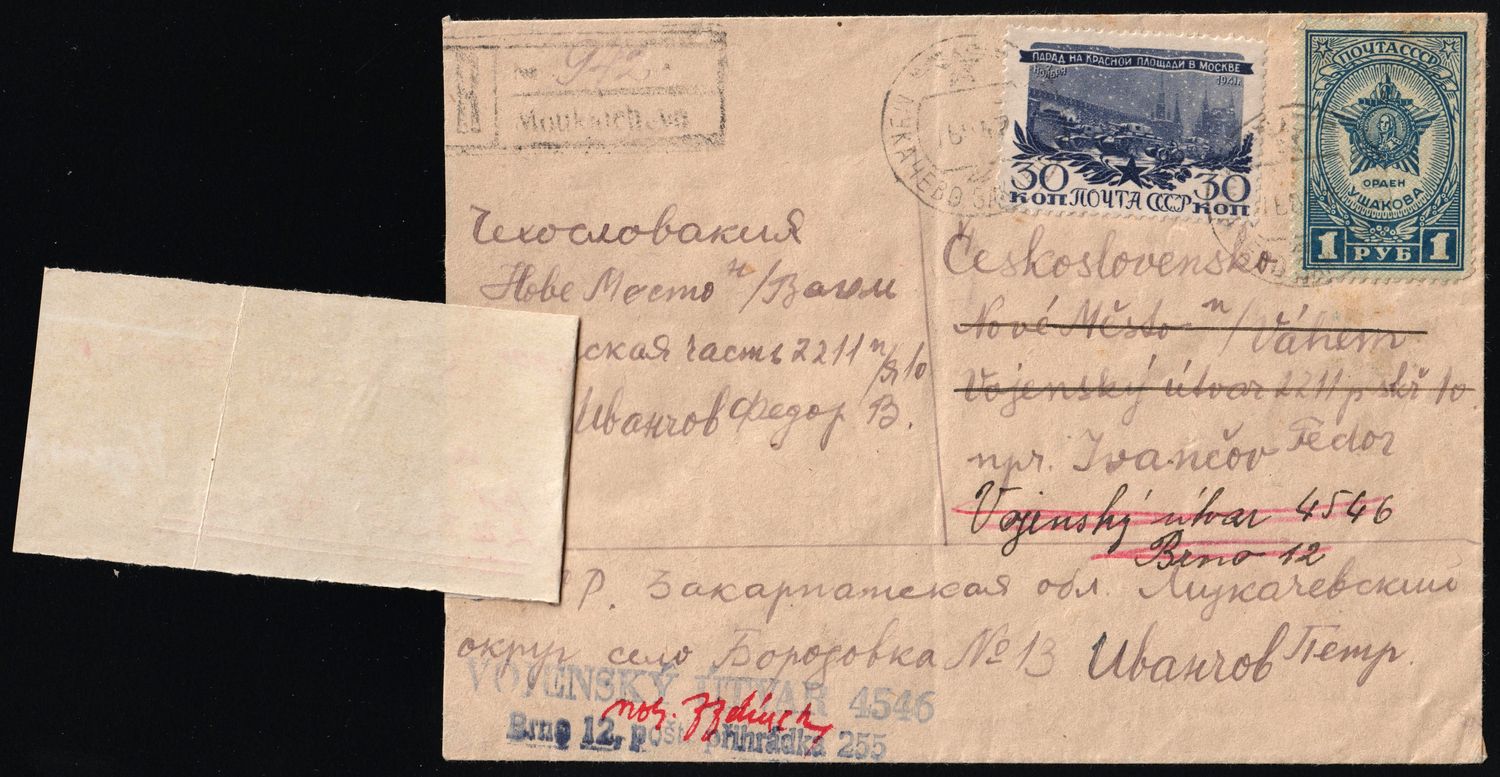 № 972
Moukatchevo
МУКАЧЕВО
ПАРАД НА КРАСНОЙ ПЛОЩАДИ В МОСКВЕ
НОЯБРЯ 1941
30 КОП ПОЧТА СССР 30 КОП
ПОЧТА СССР
ОРДЕН
УШАКОВА
1 РУБ 1
Чехословакия
Нове Место н/Вагом
ская часть 2211 п/я 10
Иванчов Федор В.
Československo
Nové Město n/Váhem
Vojenský útvar 2211 p. skř 10
npr. Ivančov Fedor
Vojenský útvar 4546
Brno 12
Р. Закарпатская обл. Мукачевский
округ село Бородовка № 13 Иванчов Петр.
VOJENSKÝ ÚTVAR 4546
Brno 12, pošt. přihrádka 255